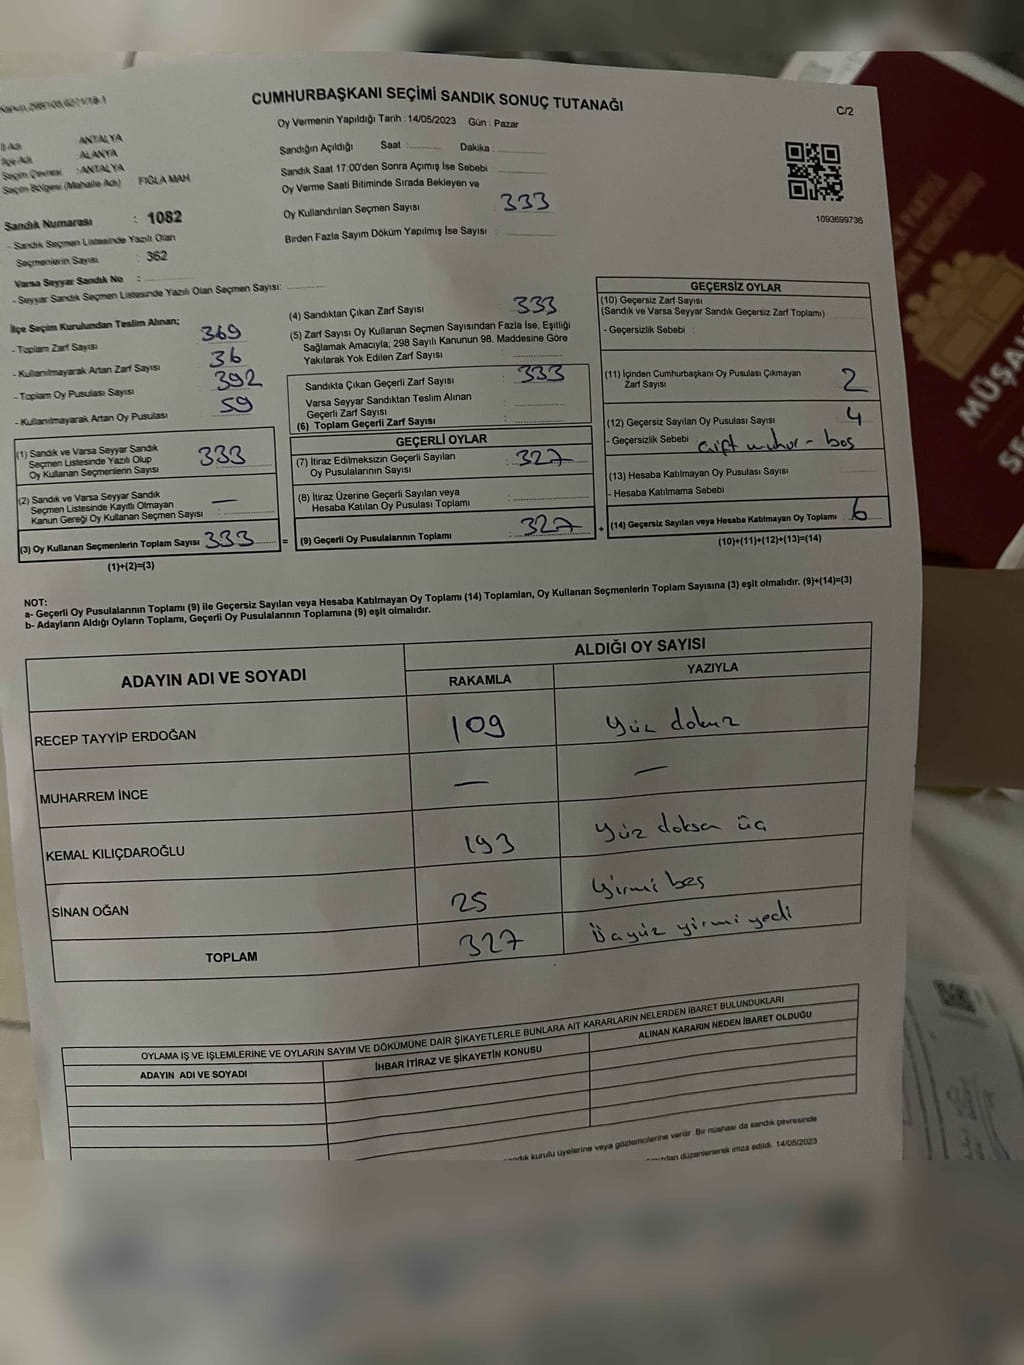 CUMHURBAŞKANI SEÇİMİ SANDIK SONUÇ TUTANAĞI
C/2
Oy Vermenin Yapıldığı Tarih : 14/05/2023 Gün : Pazar
İl Adı : ANTALYA
İlçe Adı : ALANYA
Seçim Çevresi : ANTALYA
Seçim Bölgesi (Mahalle Adı) FIĞLA MAH.
Sandık Numarası : 1082
- Sandık Seçmen Listesinde Yazılı Olan
Seçmenlerin Sayısı : 362
Varsa Seyyar Sandık No :
- Seyyar Sandık Seçmen Listesinde Yazılı Olan Seçmen Sayısı:
Sandığın Açıldığı Saat : Dakika :
Sandık Saat 17:00'den Sonra Açımış İse Sebebi
Oy Verme Saati Bitiminde Sırada Bekleyen ve
Oy Kullandırılan Seçmen Sayısı 333
Birden Fazla Sayım Döküm Yapılmış İse Sayısı :
1093699736
İlçe Seçim Kurulundan Teslim Alınan;
- Toplam Zarf Sayısı 369
- Kullanılmayarak Artan Zarf Sayısı 36
- Toplam Oy Pusulası Sayısı 392
- Kullanılmayarak Artan Oy Pusulası 59
(1) Sandık ve Varsa Seyyar Sandık
Seçmen Listesinde Yazılı Olup
Oy Kullanan Seçmenlerin Sayısı 333
(2) Sandık ve Varsa Seyyar Sandık
Seçmen Listesinde Kayıtlı Olmayan
Kanun Gereği Oy Kullanan Seçmen Sayısı : —
(3) Oy Kullanan Seçmenlerin Toplam Sayısı 333 =
(1)+(2)=(3)
(4) Sandıktan Çıkan Zarf Sayısı : 333
(5) Zarf Sayısı Oy Kullanan Seçmen Sayısından Fazla İse, Eşitliği
Sağlamak Amacıyla; 298 Sayılı Kanunun 98. Maddesine Göre
Yakılarak Yok Edilen Zarf Sayısı :
Sandıkta Çıkan Geçerli Zarf Sayısı : 333
Varsa Seyyar Sandıktan Teslim Alınan
Geçerli Zarf Sayısı :
(6) Toplam Geçerli Zarf Sayısı :
GEÇERLİ OYLAR
(7) İtiraz Edilmeksizin Geçerli Sayılan
Oy Pusulalarının Sayısı : 327
(8) İtiraz Üzerine Geçerli Sayılan veya
Hesaba Katılan Oy Pusulası Toplamı :
(9) Geçerli Oy Pusulalarının Toplamı : 327 +
GEÇERSİZ OYLAR
(10) Geçersiz Zarf Sayısı
(Sandık ve Varsa Seyyar Sandık Geçersiz Zarf Toplamı)
- Geçersizlik Sebebi :
(11) İçinden Cumhurbaşkanı Oy Pusulası Çıkmayan
Zarf Sayısı 2
(12) Geçersiz Sayılan Oy Pusulası Sayısı 4
- Geçersizlik Sebebi çift muhur - boş
(13) Hesaba Katılmayan Oy Pusulası Sayısı
- Hesaba Katılmama Sebebi
(14) Geçersiz Sayılan veya Hesaba Katılmayan Oy Toplamı 6
(10)+(11)+(12)+(13)=(14)
NOT:
a- Geçerli Oy Pusulalarının Toplamı (9) ile Geçersiz Sayılan veya Hesaba Katılmayan Oy Toplamı (14) Toplamları, Oy Kullanan Seçmenlerin Toplam Sayısına (3) eşit olmalıdır. (9)+(14)=(3)
b- Adayların Aldığı Oyların Toplamı, Geçerli Oy Pusulalarının Toplamına (9) eşit olmalıdır.
ADAYIN ADI VE SOYADI
ALDIĞI OY SAYISI
RAKAMLA YAZIYLA
RECEP TAYYİP ERDOĞAN 109 Yüz dokuz
MUHARREM İNCE — —
KEMAL KILIÇDAROĞLU 193 Yüz doksa üç
SİNAN OĞAN 25 Yirmi beş
TOPLAM 327 Üçyüz yirmi yedi
OYLAMA İŞ VE İŞLEMLERİNE VE OYLARIN SAYIM VE DÖKÜMÜNE DAİR ŞİKAYETLERLE BUNLARA AİT KARARLARIN NELERDEN İBARET BULUNDUKLARI
ADAYIN ADI VE SOYADI İHBAR İTİRAZ VE ŞİKAYETİN KONUSU ALINAN KARARIN NEDEN İBARET OLDUĞU
kurulu üyelerine veya gözlemcilerine verilir. Bir nüshası da sandık çevresinde
düzenlenerek imza edildi. 14/05/2023
MÜŞA